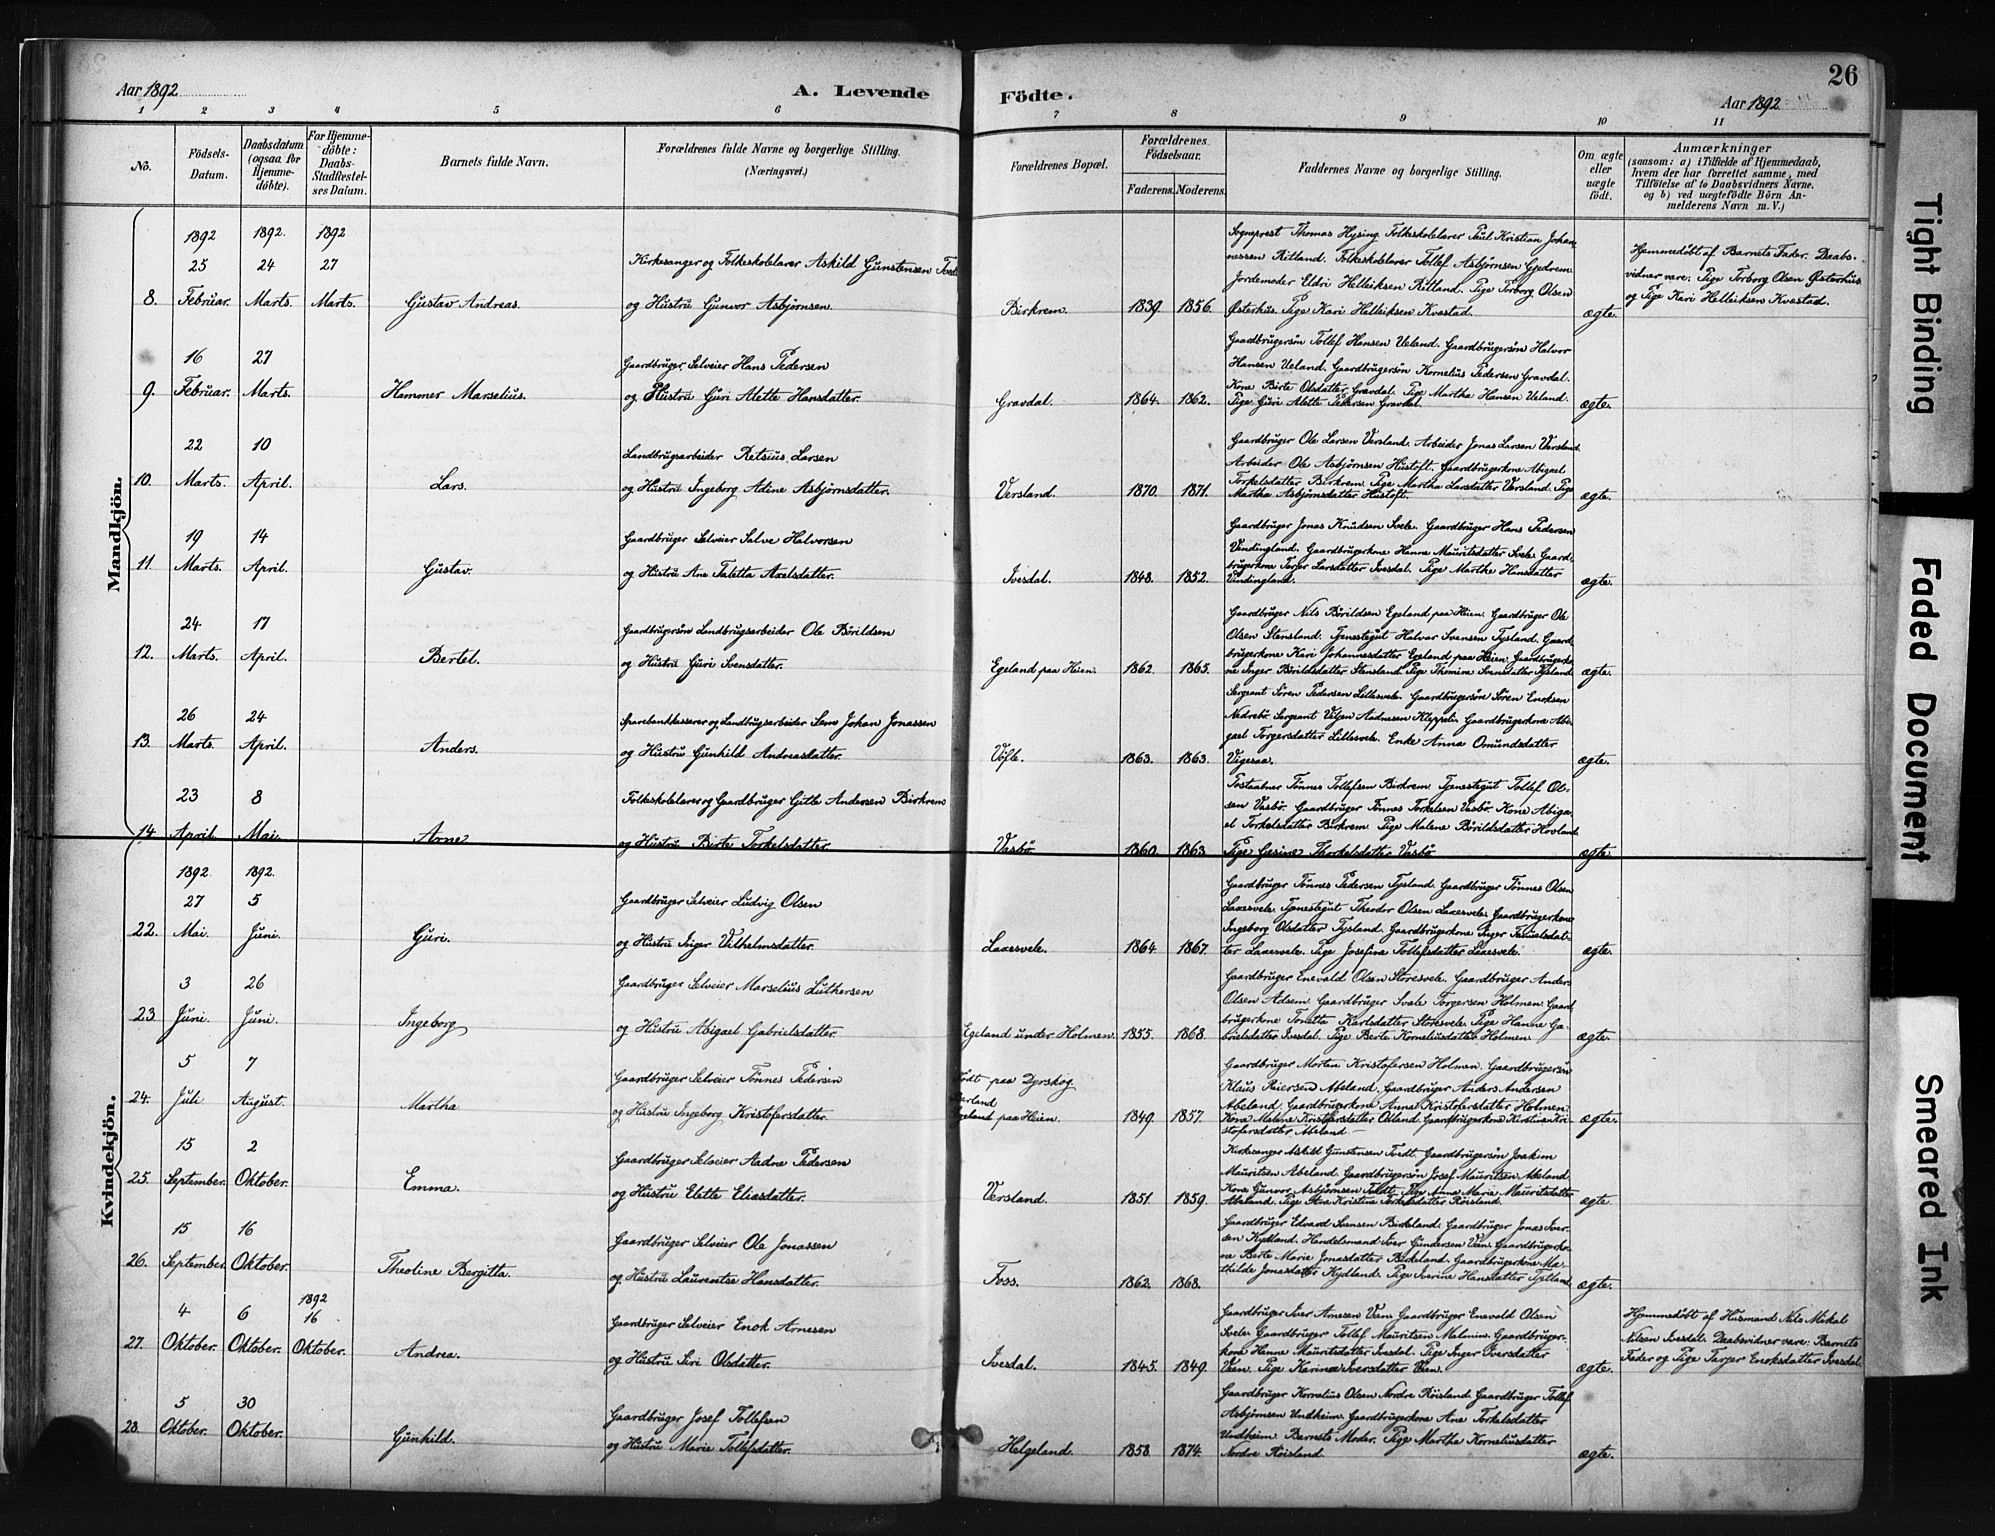 Aar 1892
A. Levende
Födte.
26
Aar 1892
1 2 3 4 5 6 7 8 9 10 11
No.
Födsels-
Datum.
Daabsdatum
(ogsaa for
Hjemme-
döbte).
For Hjemme-
döbte:
Daabs-
Stadfæstel-
ses Datum.
Barnets fulde Navn.
Forældrenes fulde Navne og borgerlige Stilling.
(Næringsvei.)
Forældrenes Bopæl.
Forældrenes
Födselsaar.
Faderens. Moderens.
Faddernes Navne og borgerlige Stilling.
Om ægte
eller
uægte
födt.
Anmærkninger
(saasom: a) i Tilfælde af Hjemmedaab,
hvem der har forrettet samme, med
Tilföielse af to Daabsvidners Navne.
og b) ved uægtefödte Börn An-
melderens Navn m. V.)
Mandkjön.
1892 1892. 1892
25 24 27
8. Februar. Marts. Marts. Gustav Andreas.
Kirkesanger og Folkeskolelærer Askild Gunstensen
og Hustru Gunvor Asbjørnsen.
Birkrem. 1839. 1856.
Sogneprest Thomas Hysing. Folkeskolelærer Paul Kristian Johan-
nessen Ritland. Folkeskolelærer Tollef Asbjørnsen Gjedrem
Jordemoder Eldri Helleiksen Ritland. Pige Torborg Olsen
Østerhus. Pige Kari Helleiksen Kvæstad.
ægte.
Hjemmedøbt af Barnets Fader. Daabs-
vidner vare: Pige Torborg Olsen Østerhus
og Pige Kari Helleiksen Kvæstad.
16 27
9. Februar. Marts. Hammer Marselius.
Gaardbruger, Selveier Hans Pedersen
og Hustru Guri Alette Hansdatter.
Gravdal. 1864. 1862.
Gaardbrugersøn Tollef Hansen Ueland. Gaardbrugersøn Halvor
Hansen Ueland. Gaardbrugersøn Kornelius Pedersen Gravdal.
Kone Birte Olsdatter Gravdal. Pige Martha Hansen Ueland.
Pige Guri Alette Pedersen Gravdal.
ægte.
22 10
10. Marts. April. Lars.
Landbrugsarbeider Retsius Larsen
og Hustru Ingeborg Adine Asbjørnsdatter.
Versland. 1870. 1871.
Gaardbruger Ole Larsen Versland. Arbeider Jonas Larsen Versland.
Arbeider Ole Asbjørnsen Hustoft. Gaardbrugerkone Abigael
Torkelsdatter Birkrem. Pige Martha Larsdatter Versland. Pige
Martha Asbjørnsdatter Hustoft.
ægte.
19 14
11. Marts. April. Gustav.
Gaardbruger Selveier Salve Halvorsen
og Hustru Ane Taletta Axelsdatter.
Ivesdal. 1848. 1852.
Gaardbruger Jonas Knudsen Svele. Gaardbruger Hans Pedersen
Vindingland. Gaardbrugerkone Hanne Mauritsdatter Svele. Gaard-
brugerkone Tarjer Larsdatter Ivesdal. Pige Marthe Hansdatter
Vindingland.
ægte.
24 17
12. Marts. April. Bertel.
Gaardbrugersøn Landbrugsarbeider Ole Børildsen
og Hustru Guri Svensdatter.
Egeland paa Heien. 1862. 1865.
Gaardbruger Nils Børildsen Egeland paa Heien. Gaardbruger Ole
Olsen Stensland. Tjenestegut Halvor Svensen Tysland. Gaard-
brugerkone Kari Johannesdatter Egeland paa Heien. Gaardbrugerko-
ne Inger Børildsdatter Stensland. Pige Thomine Svensdatter Tysland.
ægte.
26 24
13. Marts. April. Anders.
Sparebankkasserer og Landbrugsarbeider Sem Johan Jonassen
og Hustru Gunhild Andreasdatter.
1863. 1863.
Sergeant Søren Pedersen Lillesvele. Gaardbrugersøn Søren Enoksen
Nedrebø. Sergeant Aadnesen Kleppeli. Gaardbrugerkone Abi-
gael Torgersdatter Lillesvele. Enke Anna Omundsdatter
Vigesaa.
ægte.
23 8
14. April. Mai. Arne
Folkeskolelærer og Gaardbruger Gitle Andersen Birkrem
og Hustru Birte Torkelsdatter
Vasbø. 1860. 1863
Tønnes Tollefsen Birkrem. Tjenestegut Tollef Ol-
sen Vasbø. Gaardbruger Tønnes Torkelsen Vasbø. Kone Abiga-
el Torkelsdatter Birkrem. Pige Malene Børildsdatter Hovland.
Pige Gesine Thorkelsdatter Vasbø
ægte.
Kvindekjön.
1892. 1892.
27 5
22. Mai. Juni. Guri.
Gaardbruger Selveier Ludvig Olsen
og Hustru Inger Vilhelmsdatter.
Laxesvele. 1864. 1867.
Gaardbruger Tønnes Pedersen Tysland. Gaardbruger Tønnes Olsen
Laxesvele. Tjenestegut Theodor Olsen Laxesvele. Gaardbrugerkone
Ingeborg Olsdatter Tysland. Gaardbrugerkone Inger
ter Laxesvele. Pige Josefine Tollefsdatter Laxesvele.
ægte.
3 26
23. Juni. Juni. Ingeborg
Gaardbruger Selveier Marselius Luthersen
og Hustru Abigael Gabrielsdatter.
Egeland under Holmen. 1855. 1868.
Gaardbruger Enevald Olsen Storesvele. Gaardbruger Anders
Olsen Adsem. Gaardbruger Svale Torgersen Holmen. Gaard-
brugerkone Tonetta Karlsdatter Storesvele. Pige Hanne Ga-
brielsdatter Ivesdal. Pige Berte Korneliusdatter Holmen.
ægte.
5 7
24. Juli. August. Martha
Gaardbruger Selveier Tønnes Pedersen
og Hustru Ingeborg Kristofersdatter.
født paa Dyrskog
Egeland paa Heien. 1849. 1857.
Gaardbruger Morten Kristofersen Holmen. Gaardbrugersøn
Klaus Reiersen Abeland. Gaardbruger Anders Andersen
Abeland. Gaardbrugerkone Anna Kristofersdatter Holmen.
Kone Malene Kristofersdatter Gaardbrugerkone Kirstian Kri-
stofersdatter Abeland
ægte.
15 2
25. September. Oktober. Emma.
Gaardbruger Selveier Aadne Pedersen
og Hustru Elette Eliasdatter.
Versland. 1851. 1859.
Kirkesanger Askild Gunstensen Tvedt. Gaardbrugersøn Joakim
Mauritsen Abeland. Gaardbrugersøn Josef Mauritsen Abeland
Kone Gunvor Asbjørnsen Tvedt. Pige Anna Marie Mauritsdatter
Abeland. Pige Kristine Torkelsdatter Røisland.
ægte
15 16
26. September. Oktober. Theoline Bergitta.
Gaardbruger Selveier Ole Jonassen
og Hustru Laurentse Hansdatter.
Foss. 1862. 1868.
Gaardbruger Edvard Svensen Birkeland. Gaardbruger Jonas Iver-
sen Kydland. Handelsmand Iver Gundersen Veen. Gaardbrugerko-
ne Berte Marie Jonasdatter Birkeland. Gaardbrugerkone Ma-
thilde Jonasdatter Kydland. Pige Iverine Hansdatter
ægte.
1892
4 6 16
27. Oktober. Oktober. Oktober. Andrea.
Gaardbruger Selveier Enok Arnesen
og Hustru Siri Olsdatter.
Ivesdal. 1845. 1849.
Gaardbruger Iver Arnesen Veen. Gaardbruger Enevald Olsen
Svele. Gaardbruger Tollef Mauritsen Malmin. Gaardbruger-
kone Hanne Mauritsdatter Ivesdal. Pige Inger Iversdatter
Veen. Pige Karine Iversdatter Veen.
ægte.
Hjemmedøbt af Husmand Nils Mikal
Nilsen Ivesdal. Daabsvidner vare: Barnets
Fader og Pige Tarjer Enoksdatter Ivesdal.
5 30
28. Oktober. Oktober. Gunhild.
Gaardbruger Josef Tollefsen
og Hustru Marie Tollefsdatter.
Helgeland. 1858. 1874.
Gaardbruger Kornelius Olsen Nordre Røisland. Gaardbruger Tollef
Asbjørnsen Undheim. Gaardbrugerkone Ane Torkelsdatter
Undheim. Barnets Moder. Pige Martha Korneliusdatter
Nordre Røisland.
ægte.
Tight Binding
Faded Document
Smeared Ink